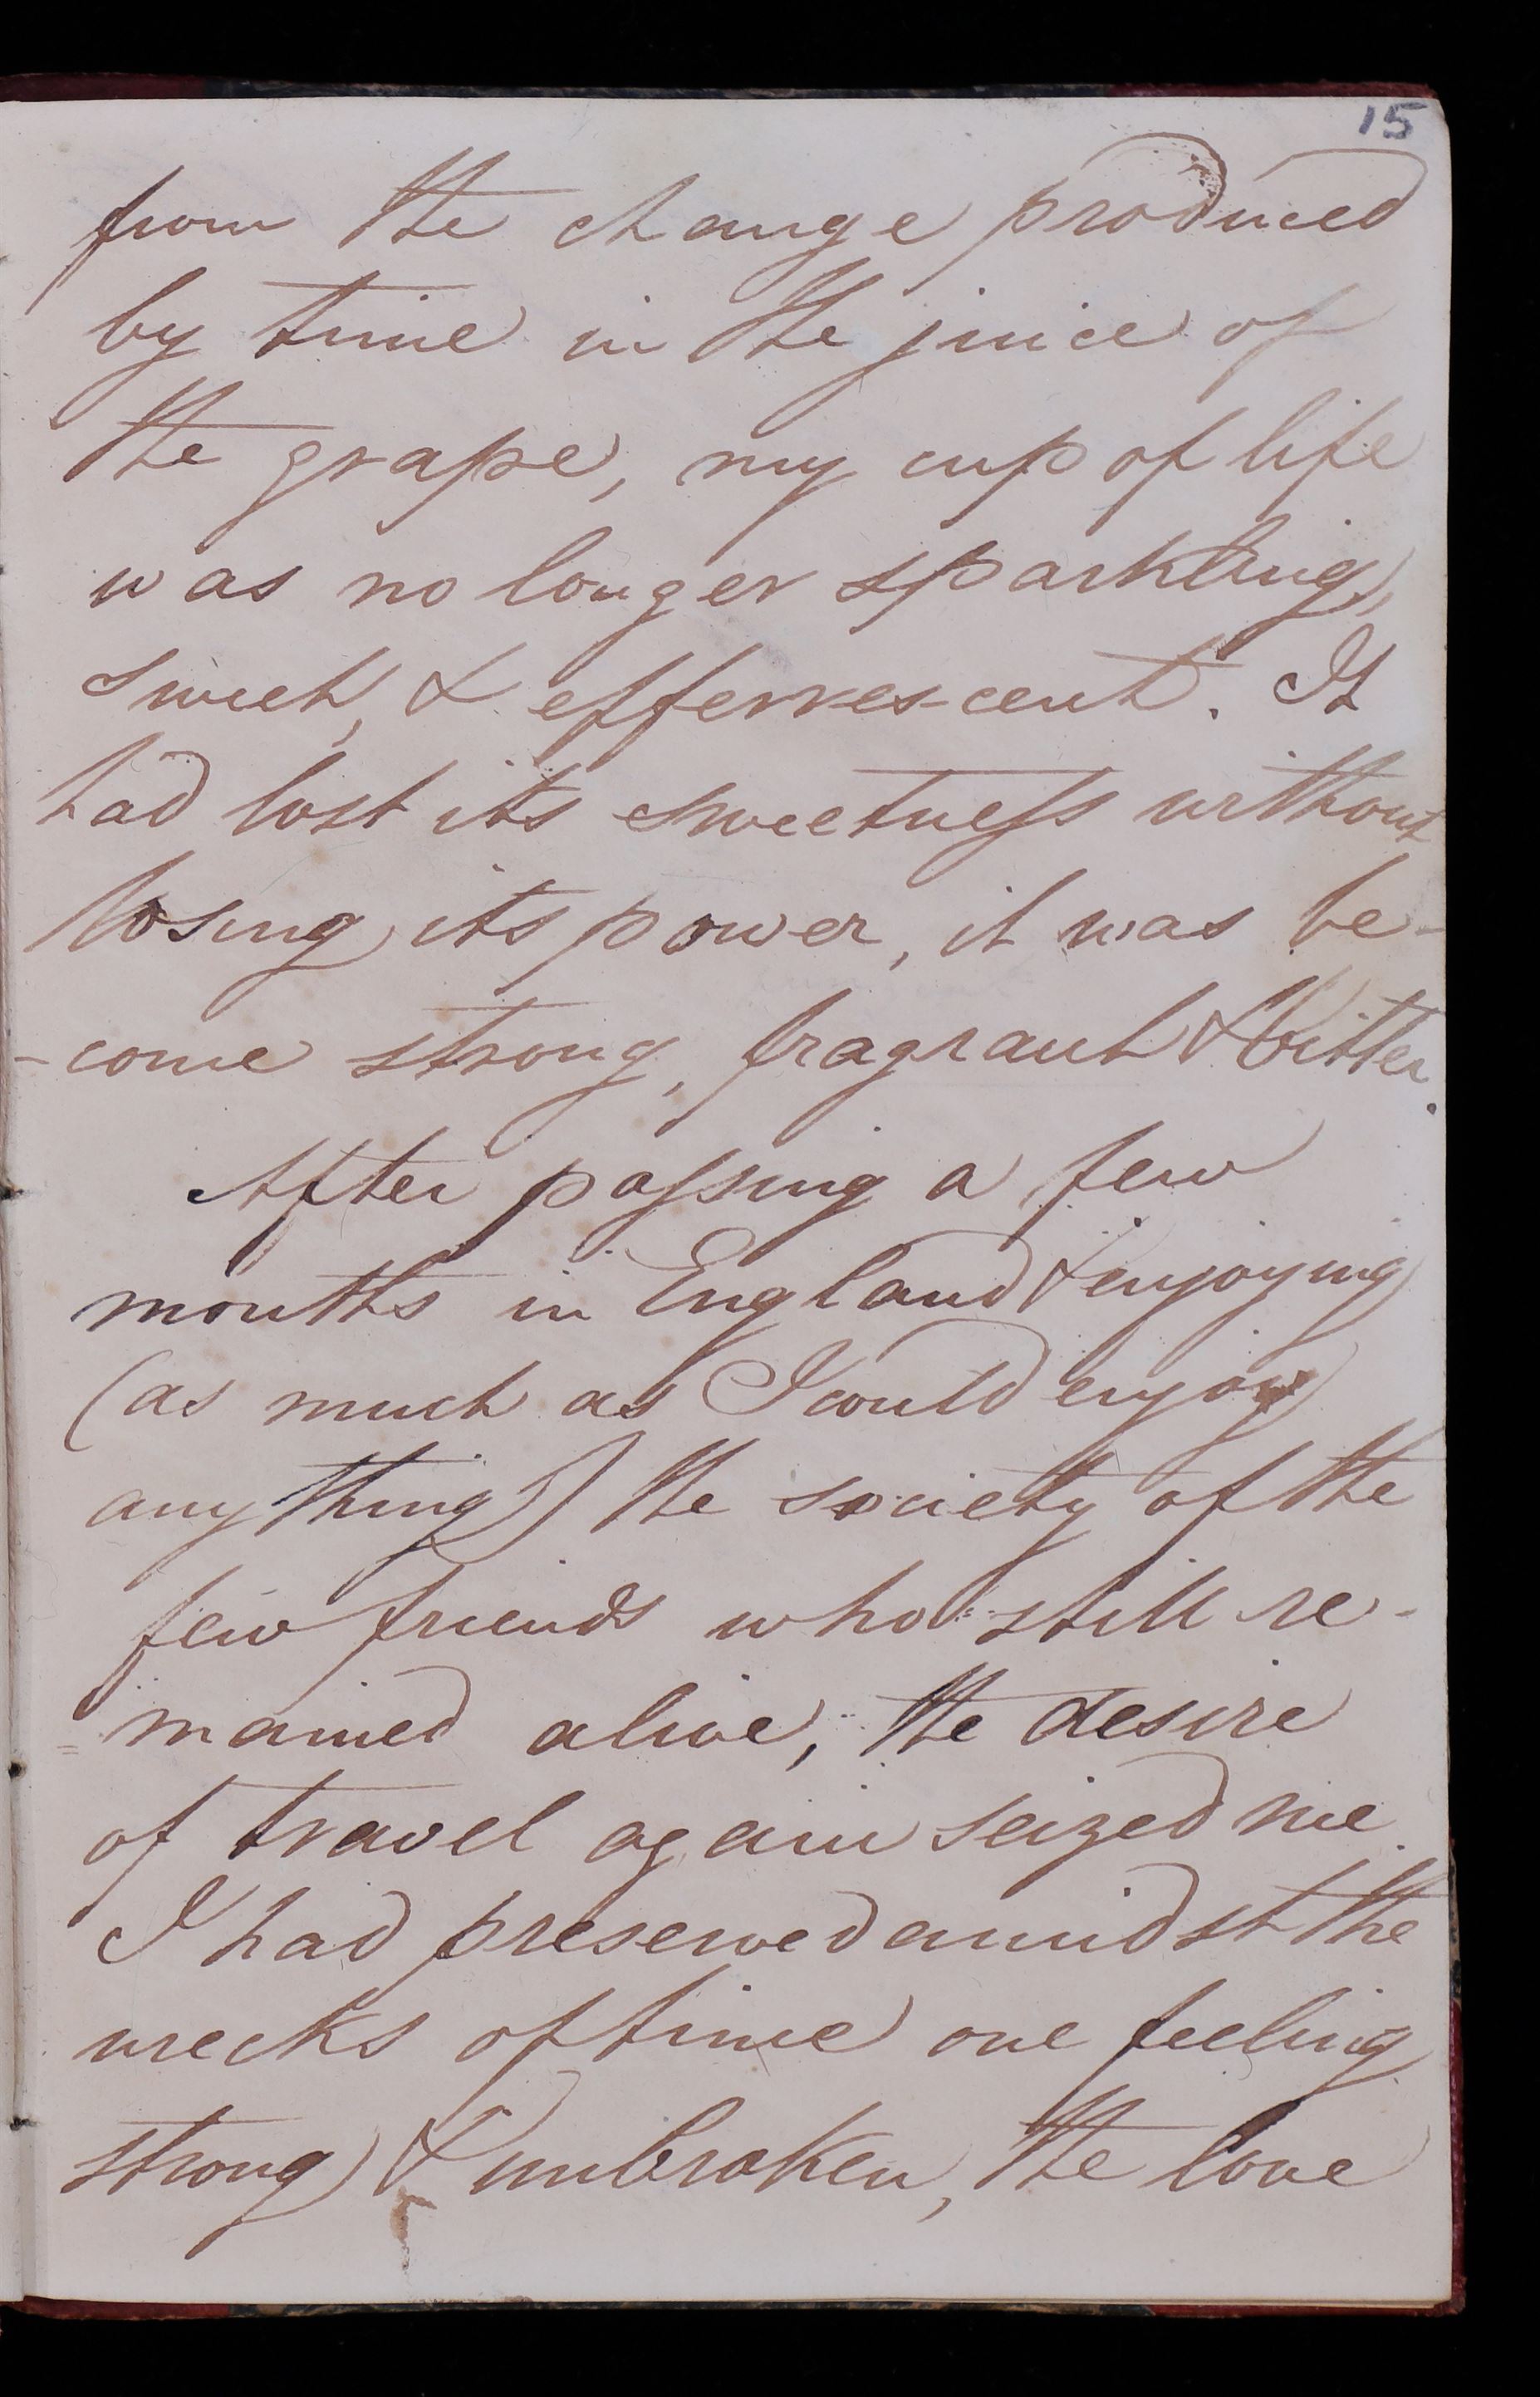 15
from the change produced
by time in the juice of
the grape, my cup of life
was no longer sparkling,
sweet, & effervescent. It
had lost its sweetness without
losing its power, it was be-
-come strong, fragrant & bitter.
After passing a few
months in England & enjoying
(as much as I could enjoy
any thing) the society of the
few friends who still re-
=mained alive, the desire
of travel again seized me.
I had preserved amidst the
wrecks of time one feeling
strong & unbroken, the love